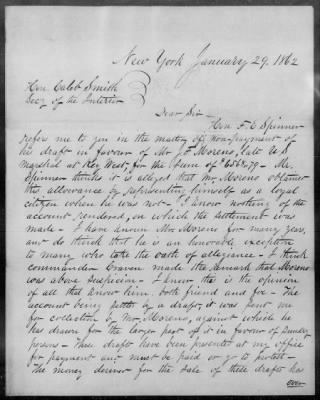 New York January 29, 1862
Hon. Caleb Smith
Secy of the Interior
Dear Sir
Hon. F. E. Spinner
refers me to you in the matter of non-payment of
the draft in favour of Mr. Moreno, late U.S.
Marshal at Key West, for the sum of Mr
Spinner thinks it is alleged that Mr Moreno obtained
this allowance by representing himself as a loyal
citizen when he was not - I know nothing of the
account rendered, on which the settlement was
made - I have known Mr Moreno for many years,
and do think that he is an honorable exception
to many who take the oath of allegiance - I think
commander Craven made the remark that Moreno
was above suspicion - I know this is the opinion
of all that know him, both friend and foe - The
account being settled by a draft, it was sent me
for collection by Mr. Moreno, against which he
has drawn for the larger part of it in favour of Sundry
persons - These drafts have been presented at my office
for payment and must be paid or go to protest -
The money derived for the sale of these drafts has
over